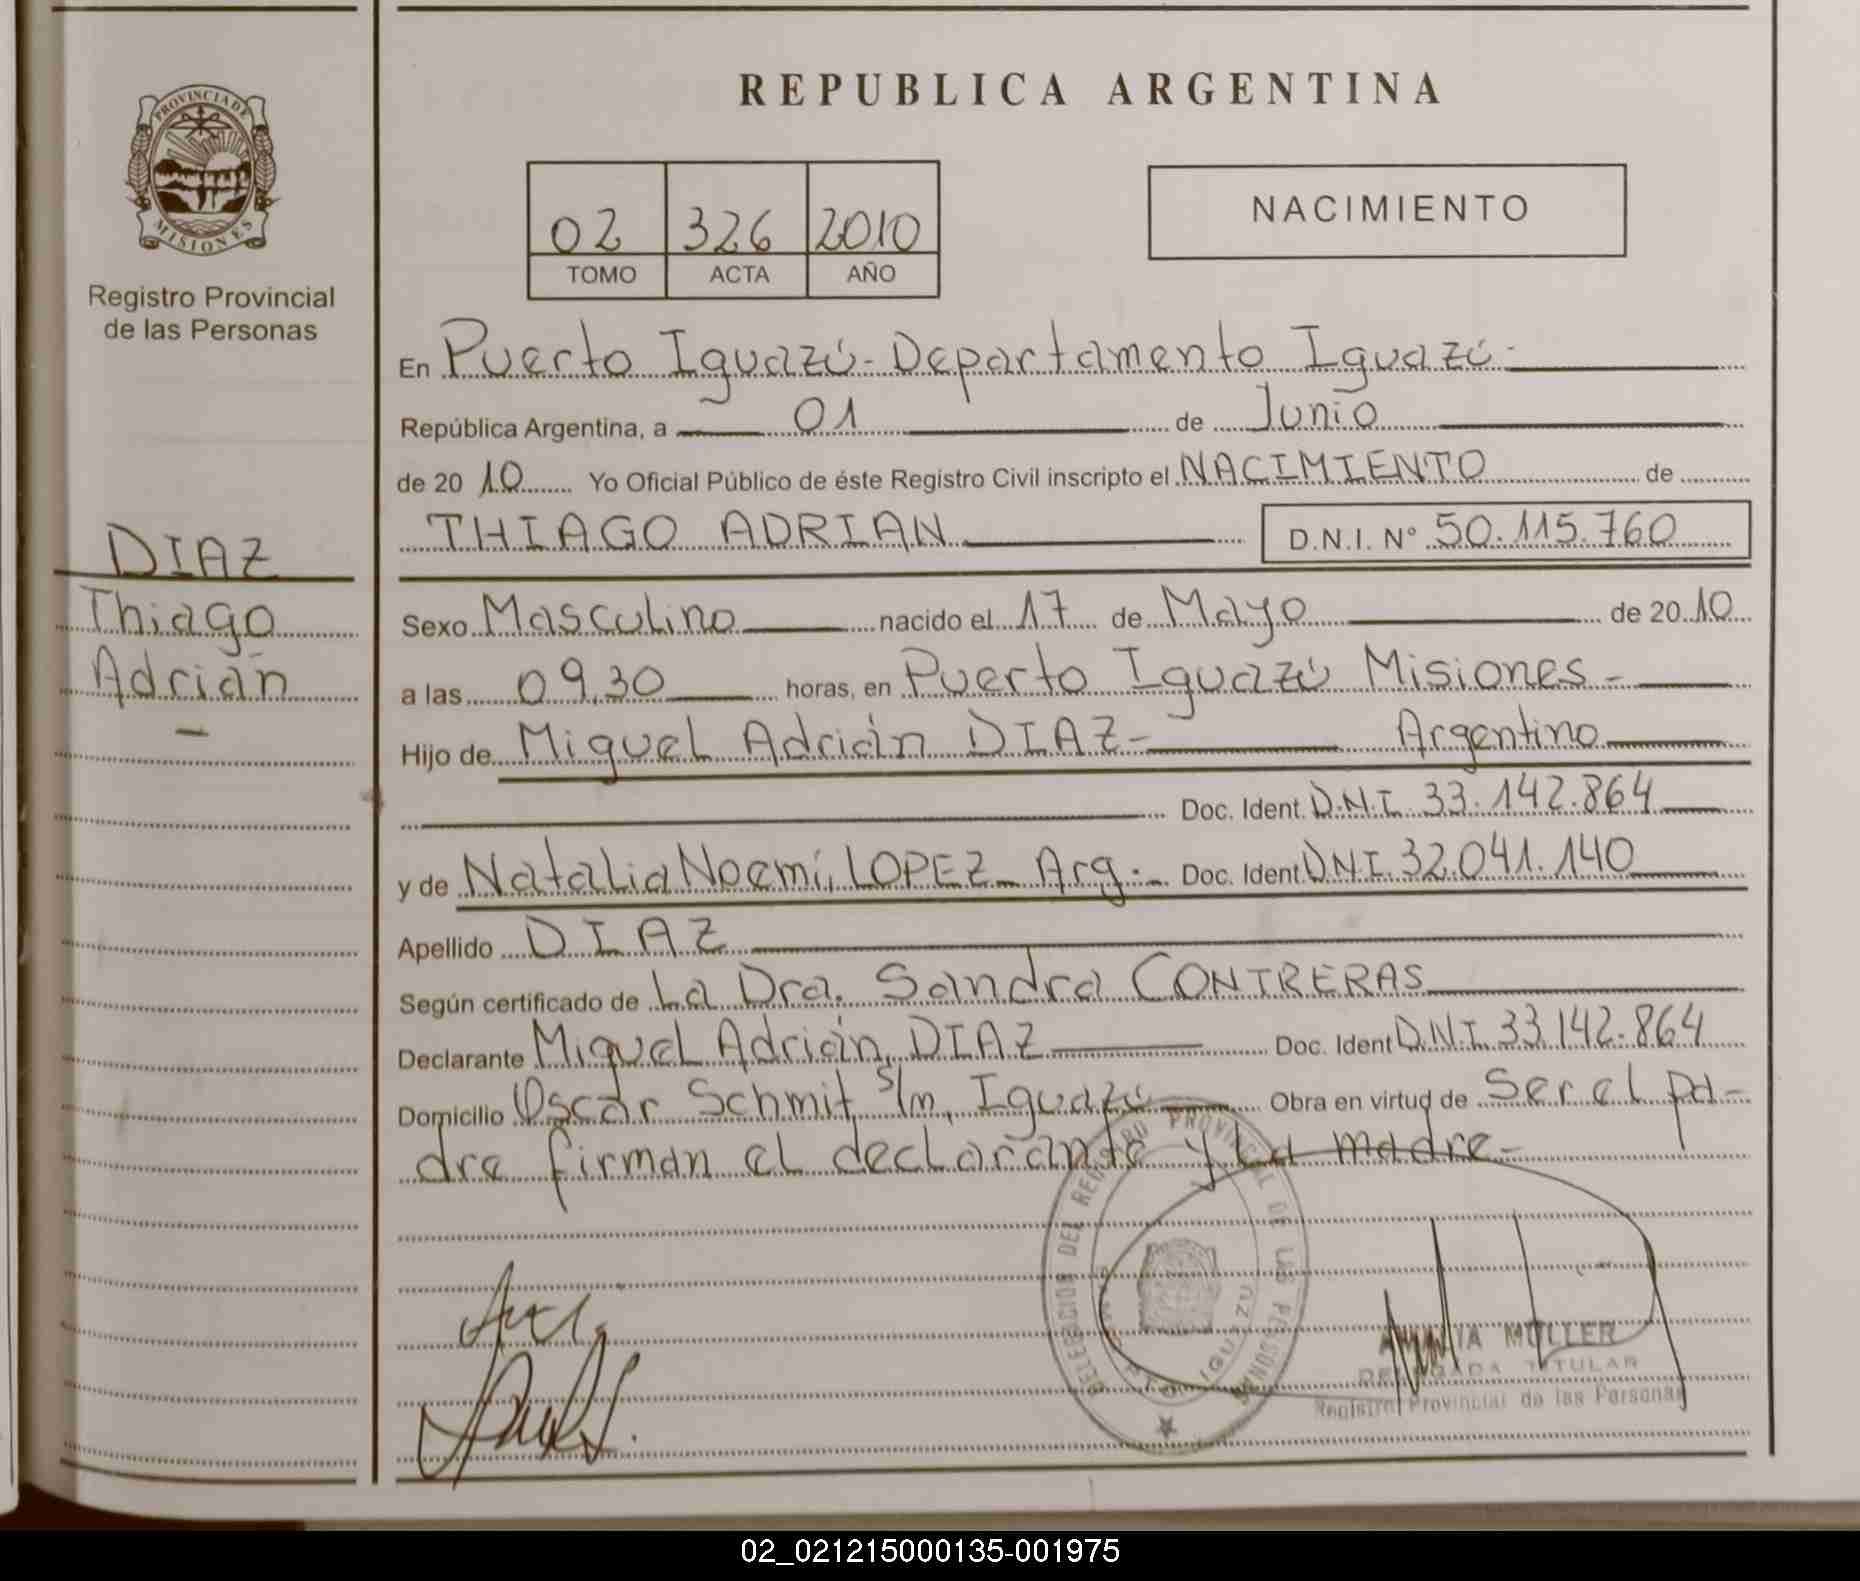 REPUBLICA ARGENTINA
PROVINCIA DE
MISIONES
Registro Provincial
de las Personas
02 326 2010
TOMO ACTA AÑO
NACIMIENTO
En Puerto Iguazú - Departamento Iguazú -
República Argentina, a 01 de Junio
de 2010 Yo Oficial Público de éste Registro Civil inscripto el NACIMIENTO de
THIAGO ADRIAN D.N.I. Nº 50.115.760
DIAZ
Thiago
Adrián
-
Sexo Masculino nacido el 17 de Mayo de 2010
a las 09,30 horas, en Puerto Iguazú Misiones -
Hijo de Miguel Adrián DIAZ - Argentino
Doc. Ident. D.N.I. 33.142.864
y de Natalia Noemí, LOPEZ - Arg. - Doc. Ident D.N.I. 32.041.140
Apellido DIAZ
Según certificado de La Dra. Sandra CONTRERAS
Declarante Miguel Adrián, DIAZ Doc. Ident D.N.I. 33.142.864
Domicilio Oscar Schmit s/m, Iguazú Obra en virtud de Ser el pa-
dre firman el declarante y La madre -
DELEGACION DEL REGISTRO PROVINCIAL DE LAS PERSONAS
IGUAZU
AMALIA MULLER
DELEGADA TITULAR
Registro Provincial de las Personas
02_021215000135-001975